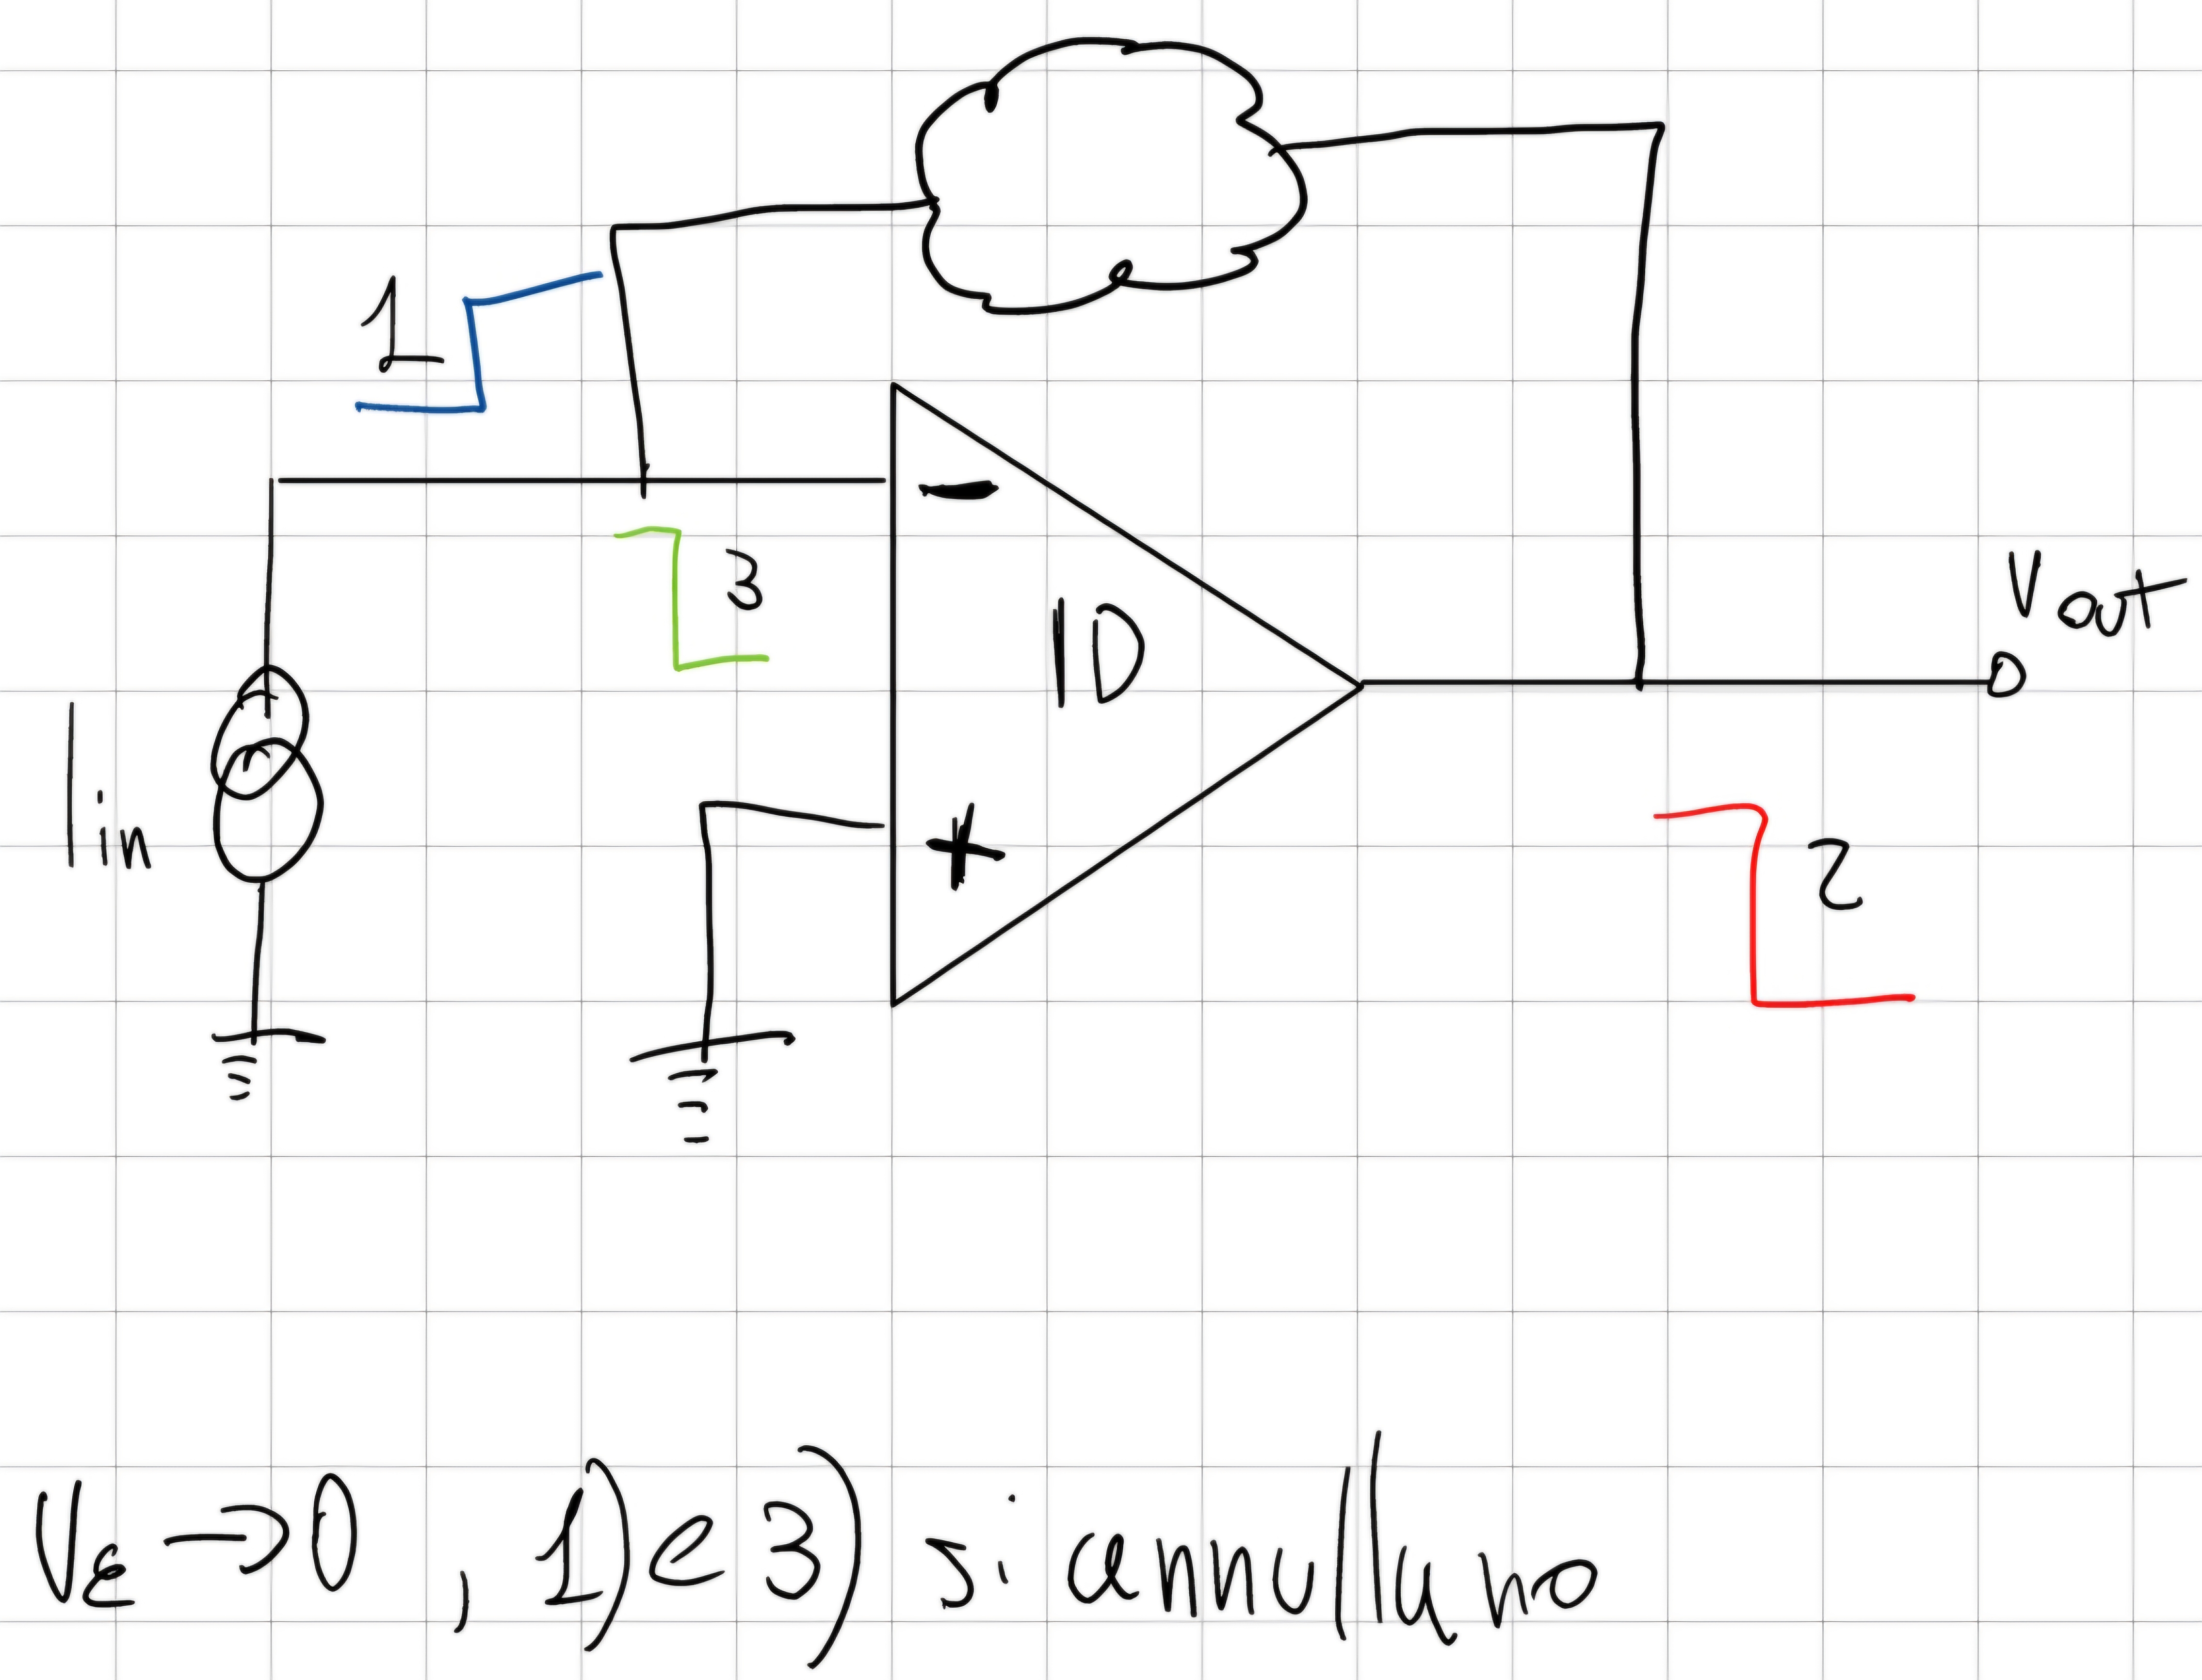 1
-
3
ID
Vout
Iin
+
2
Vε→0, 1) e 3) si annullano